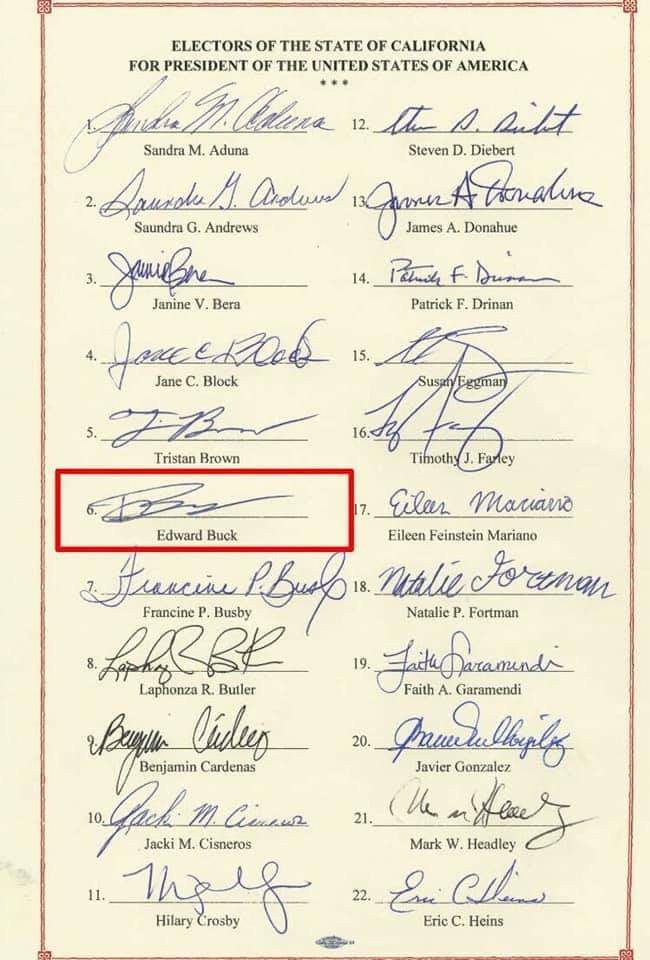 ELECTORS OF THE STATE OF CALIFORNIA
FOR PRESIDENT OF THE UNITED STATES OF AMERICA
* * *
1. Sandra M. Aduna
Sandra M. Aduna
2. Saundra G. Andrews
Saundra G. Andrews
3. Janine Bera
Janine V. Bera
4. Jane C Block
Jane C. Block
5.
Tristan Brown
6.
Edward Buck
7. Francine P. Busby
Francine P. Busby
8.
Laphonza R. Butler
9. Benjamin Cardenas
Benjamin Cardenas
10. Jacki M. Cisneros
Jacki M. Cisneros
11.
Hilary Crosby
12. Steven D. Diebert
Steven D. Diebert
13. James A Donahue
James A. Donahue
14. Patrick F. Drinan
Patrick F. Drinan
15.
Susan Eggman
16.
Timothy J. Farley
17. Eileen Mariano
Eileen Feinstein Mariano
18. Natalie Fortman
Natalie P. Fortman
19. Faith Garamendi
Faith A. Garamendi
20.
Javier Gonzalez
21.
Mark W. Headley
22. Eric C. Heins
Eric C. Heins